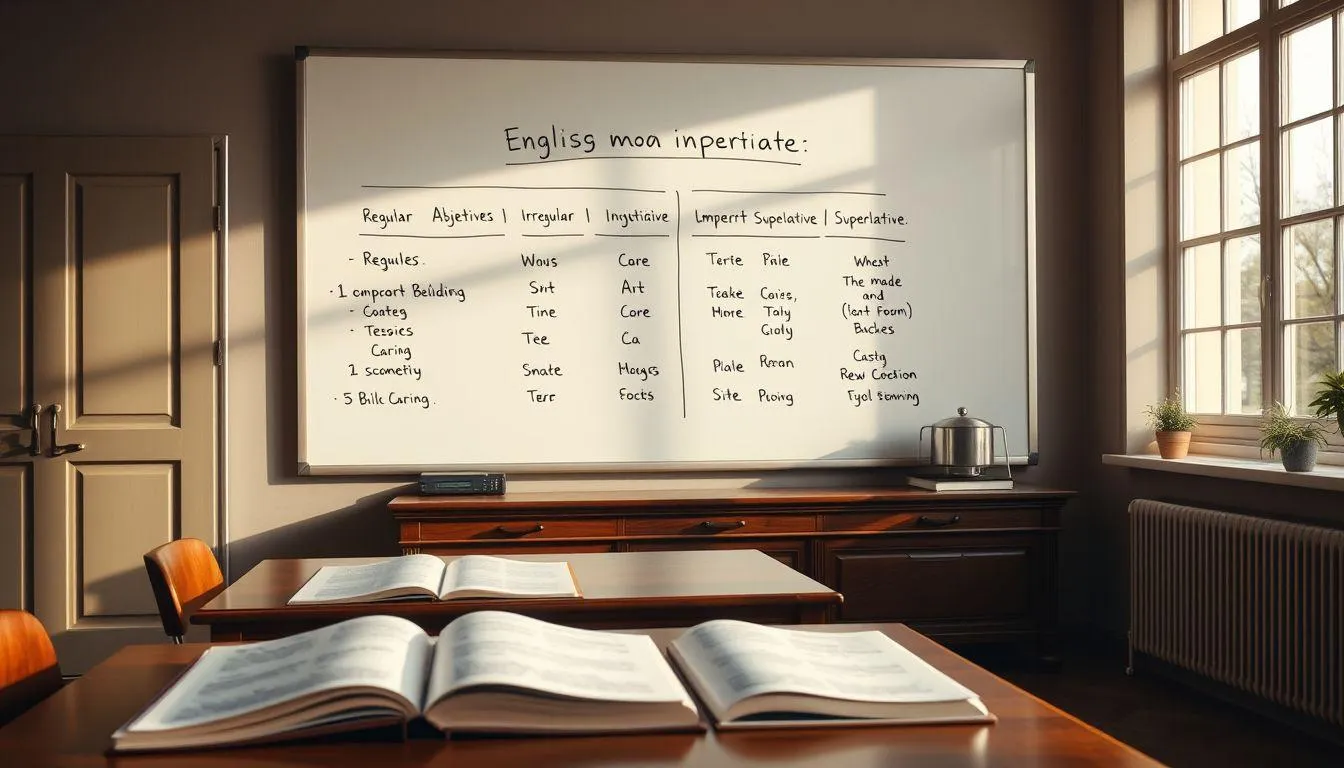 Englisg moa inpertiate:
Regular Abjetives | Irregular | Ingıtiaive Lmperrt Supelative | Superlative.
- Regules. Woıs Core Terte Pile Whest
· 1 cmpcort Beilding Srıt Art Teake Caies, The made and
- Coateg Tine Core Hore Taly (lant Foım)
· Tessics Tee Ca Gioly Backes
Caring
1 scometiy Snate Hougs Plale Rean Castg
Rew Coction
· 5 Bilk Caring. Terr Eocts Site Pioing Fyol Sınning